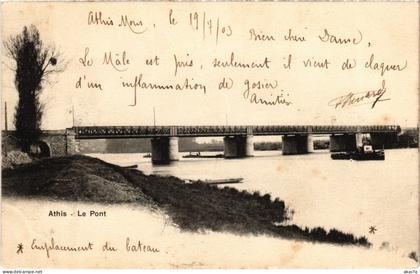 Athis Mons, le 19/7/03
Bien chère Dame,
Le Mâle est pris, seulement il vient de claquer
d'un inflammation de gosier
Amitiés
Athis - Le Pont
* Emplacement du bateau
*